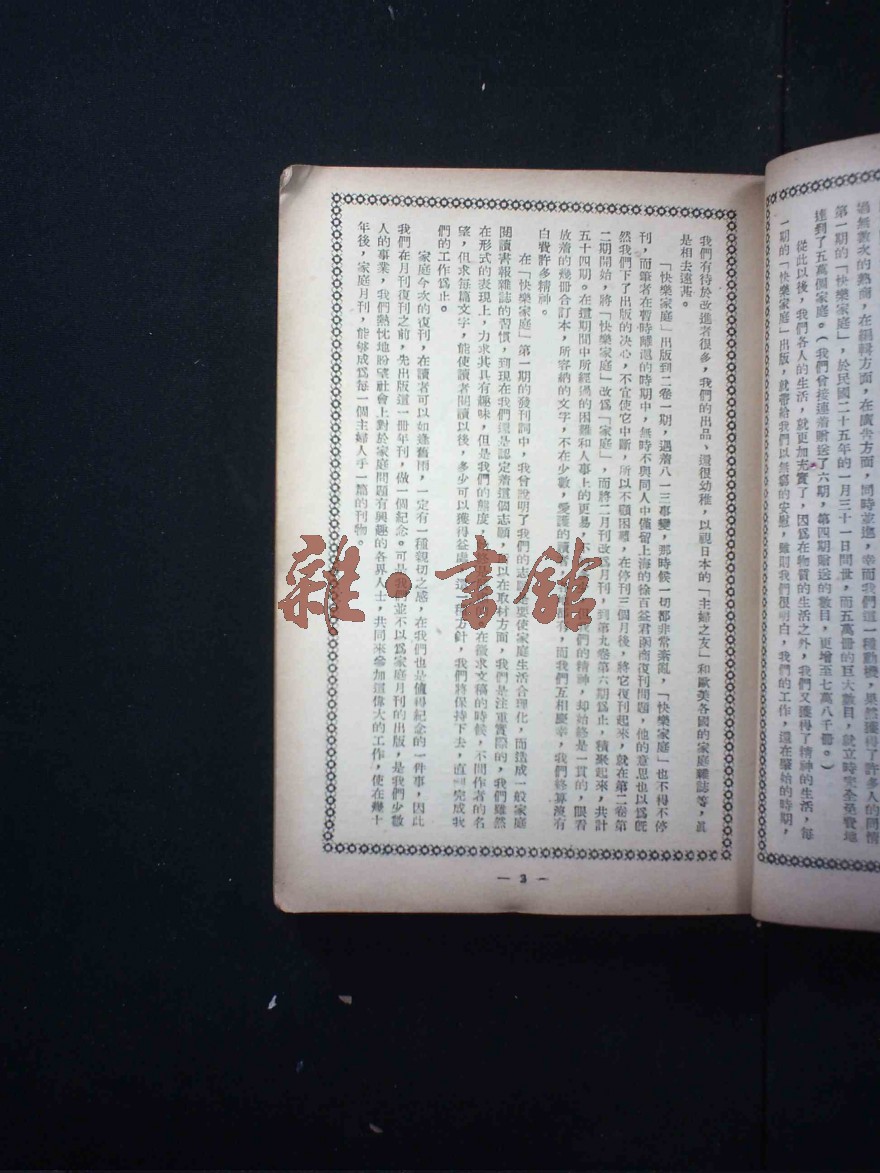 過無數次的熟商，在編輯方面，在廣告方面，同時並進，幸而我們這一種動機，果然獲得了許多人的同情
第一期的「快樂家庭」，於民國二十五年的一月三十一日問世，而五萬冊的巨大數目，就立時完全耗費地
達到了五萬個家庭。（我們曾接連着贈送了六期，第四期贈送的數目，更增至七萬八千冊。）
從此以後，我們各人的生活，就更加充實了，因爲在物質的生活之外，我們又獲得了精神的生活，每
一期的「快樂家庭」出版，就帶給我們以無窮的安慰，雖則我們很明白，我們的工作，還在肇始的時期，
我們有待於改進者很多，我們的出品、還很幼稚，以視日本的「主婦之友」和歐美各國的家庭雜誌等，眞
是相去遠甚。
「快樂家庭」出版到二卷一期，遇着八一三事變，那時候一切都非常紊亂，「快樂家庭」也不得不停
刊，而筆者在暫時離滬的時期中，無時不與同人中僅留上海的徐百益君函商復刊問題，他的意思也以爲旣
然我們下了出版的決心，不宜使它中斷，所以不顧困難，在停刊三個月後，將它復刊起來，就在第二卷第
二期開始，將「快樂家庭」改爲「家庭」，而將二月刊改爲月刊，到第九卷第六期爲止，積聚起來，共計
五十四期。在這期間中所經過的困難和人事上的更易，不 但我們的精神，却始終是一貫的，眼看
放着的幾冊合訂本，所容納的文字，不在少數，愛護的讀者 有，而我們互相慶幸，我們終算沒有
白費許多精神。
在「快樂家庭」第一期的發刊詞中，我曾說明了我們的志願 要使家庭生活合理化，而造成一般家庭
閱讀書報雜誌的習慣，到現在我們還是認定着這個志願，所以在取材方面，我們是注重實際的，我們雖然
在形式的表現上，力求其具有趣味，但是我們的態度， 在徵求文稿的時候，不問作者的名
望，但求每篇文字，能使讀者閱讀以後，多少可以獲得益處 這一種方針，我們將保持下去，直到完成我
們的工作爲止。
家庭今次的復刊，在讀者可以如逢舊雨，一定有一種親切之感，在我們也是值得紀念的一件事，因此
我們在月刊復刊之前，先出版這一冊年刊，做一個紀念。可是我們並不以爲家庭月刊的出版，是我們少數
人的事業，我們熱忱地盼望社會上對於家庭問題有興趣的各界人士，共同來參加這偉大的工作，使在幾十
年後，家庭月刊，能够成爲每一個主婦人手一篇的刊物。
— 3 —
雜·書館